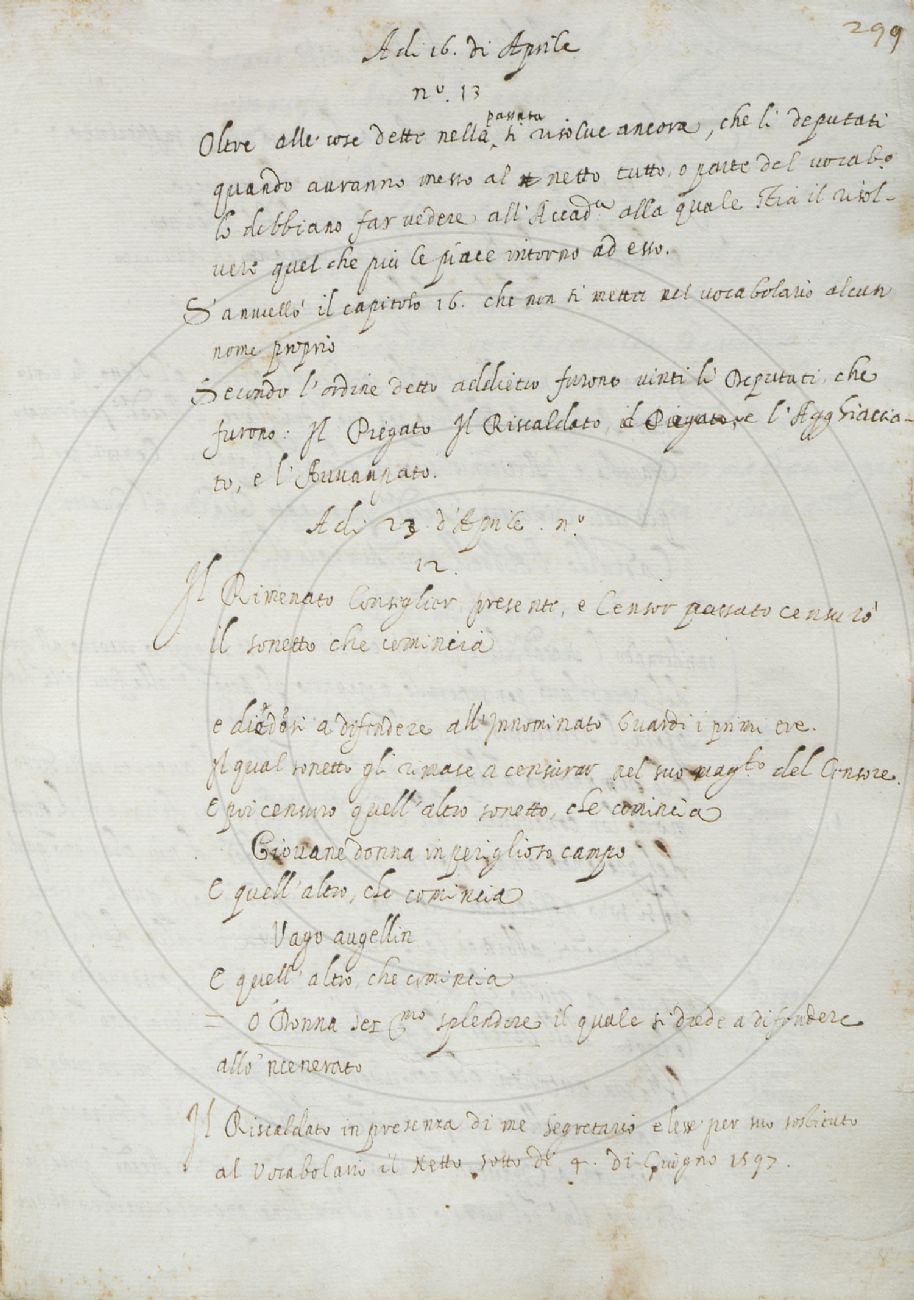 299
A di 16. di Aprile
nº. 13
Oltre alle cose dette nella passata si risolue ancora, che li deputati
quando auranno messo al netto tutto, o parte del vocabº
lo debbiano far vedere all'Accadª alla quale stia il risol-
vere quel che più le piace intorno ad esso.
S'annullò il capitolo 16. che non si mettesse nel uocabolario alcun
nome proprio
Secondo l'ordine detto addietro furono uinti li Deputati che
furono: Il Piegato Il Riscaldato, il Piegato, e l'Agghiaccia-
to, e l'Auuampato.
A di 23 d'Aprile. nº
12.
Il Rimenato Consiglier presente, e Censor passato censurò
il sonetto che comincia
e diedesi a difendere all'Innominato Guardi i primi eve.
Il qual sonetto gli rimase a censurar nel suo magto del Censore.
E poi censurò quell'altro sonetto, che comincia
Giouane donna in periglioso campo
E quell'altro, che comincia
Vago augellin
E quell'altro, che comincia
= O Donna del Cmo splendore il quale si diede a difendere
allo 'ncenerato
Il Riscaldato in presenza di me segretario elesse per suo sostituto
al Vocabolario il Netto sotto dì 4. di Giugno 1597.